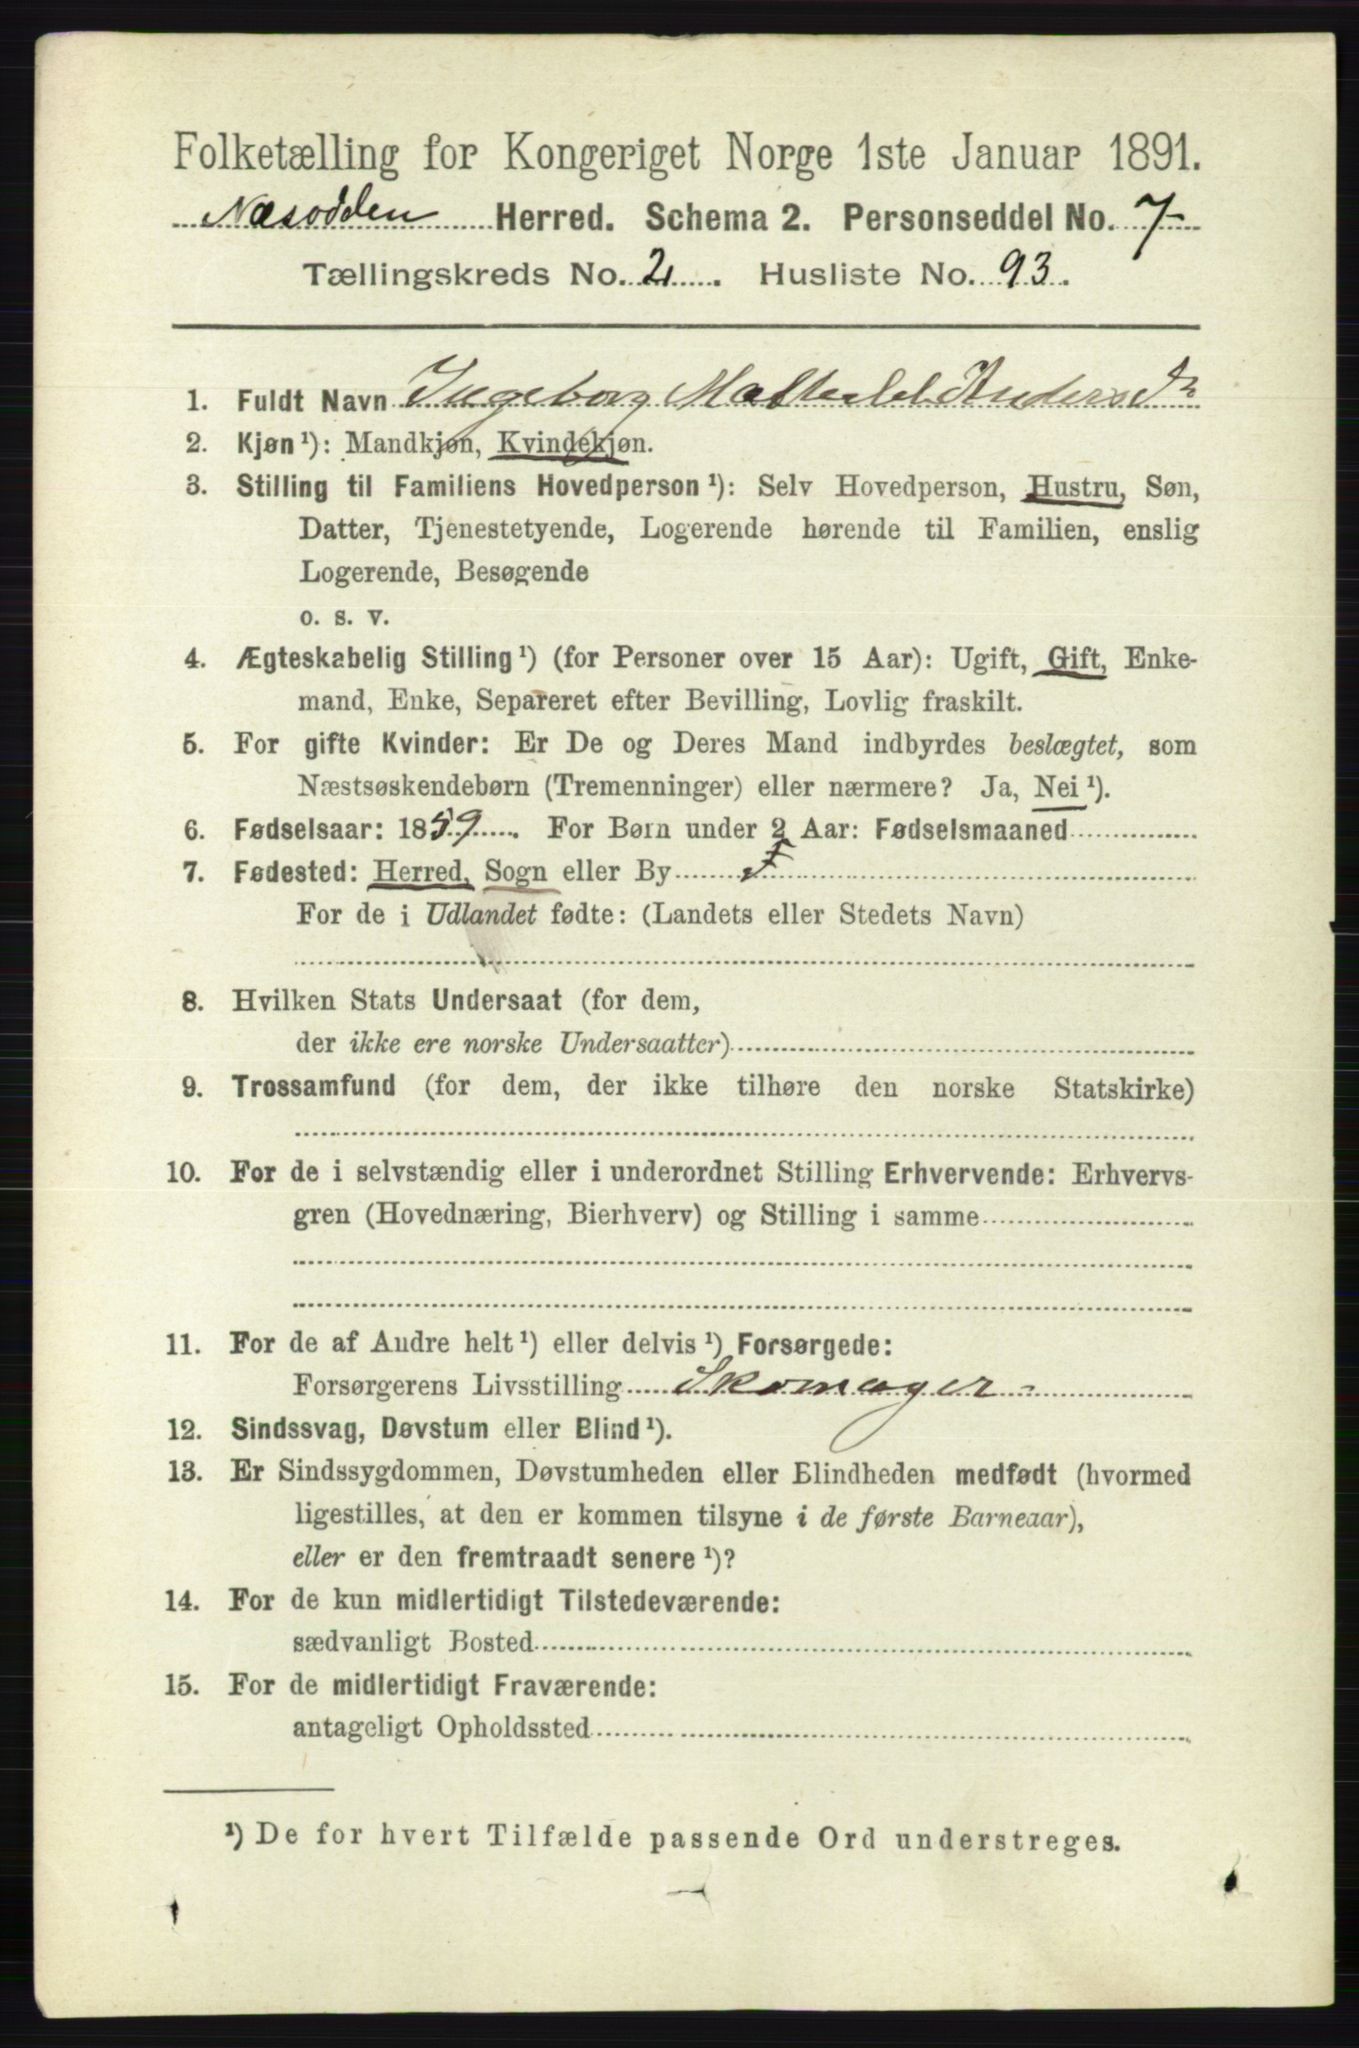 Folketælling for Kongeriget Norge 1ste Januar 1891.
Næsodden Herred. Schema 2. Personseddel No. 7
Tællingskreds No. 2. Husliste No. 93.
1. Fuldt Navn Ingeborg Mathilde Andersdr
2. Kjøn¹): Mandkjøn, Kvindekjøn.
3. Stilling til Familiens Hovedperson¹): Selv Hovedperson, Hustru, Søn,
Datter, Tjenestetyende, Logerende hørende til Familien, enslig
Logerende, Besøgende
o. s. v.
4. Ægteskabelig Stilling¹) (for Personer over 15 Aar): Ugift, Gift, Enke-
mand, Enke, Separeret efter Bevilling, Lovlig fraskilt.
5. For gifte Kvinder: Er De og Deres Mand indbyrdes beslægtet, som
Næstsøskendebørn (Tremenninger) eller nærmere? Ja, Nei¹).
6. Fødselsaar: 1859. For Børn under 2 Aar: Fødselsmaaned
7. Fødested: Herred, Sogn eller By
For de i Udlandet fødte: (Landets eller Stedets Navn)
8. Hvilken Stats Undersaat (for dem,
der ikke ere norske Undersaatter)
9. Trossamfund (for dem, der ikke tilhøre den norske Statskirke)
10. For de i selvstændig eller i underordnet Stilling Erhvervende: Erhvervs-
gren (Hovednæring, Bierhverv) og Stilling i samme
11. For de af Andre helt¹) eller delvis¹) Forsørgede:
Forsørgerens Livsstilling Skomager
12. Sindssvag, Døvstum eller Blind¹).
13. Er Sindssygdommen, Døvstumheden eller Blindheden medfødt (hvormed
ligestilles, at den er kommen tilsyne i de første Barneaar),
eller er den fremtraadt senere¹)?
14. For de kun midlertidigt Tilstedeværende:
sædvanligt Bosted
15. For de midlertidigt Fraværende:
antageligt Opholdssted
¹) De for hvert Tilfælde passende Ord understreges.